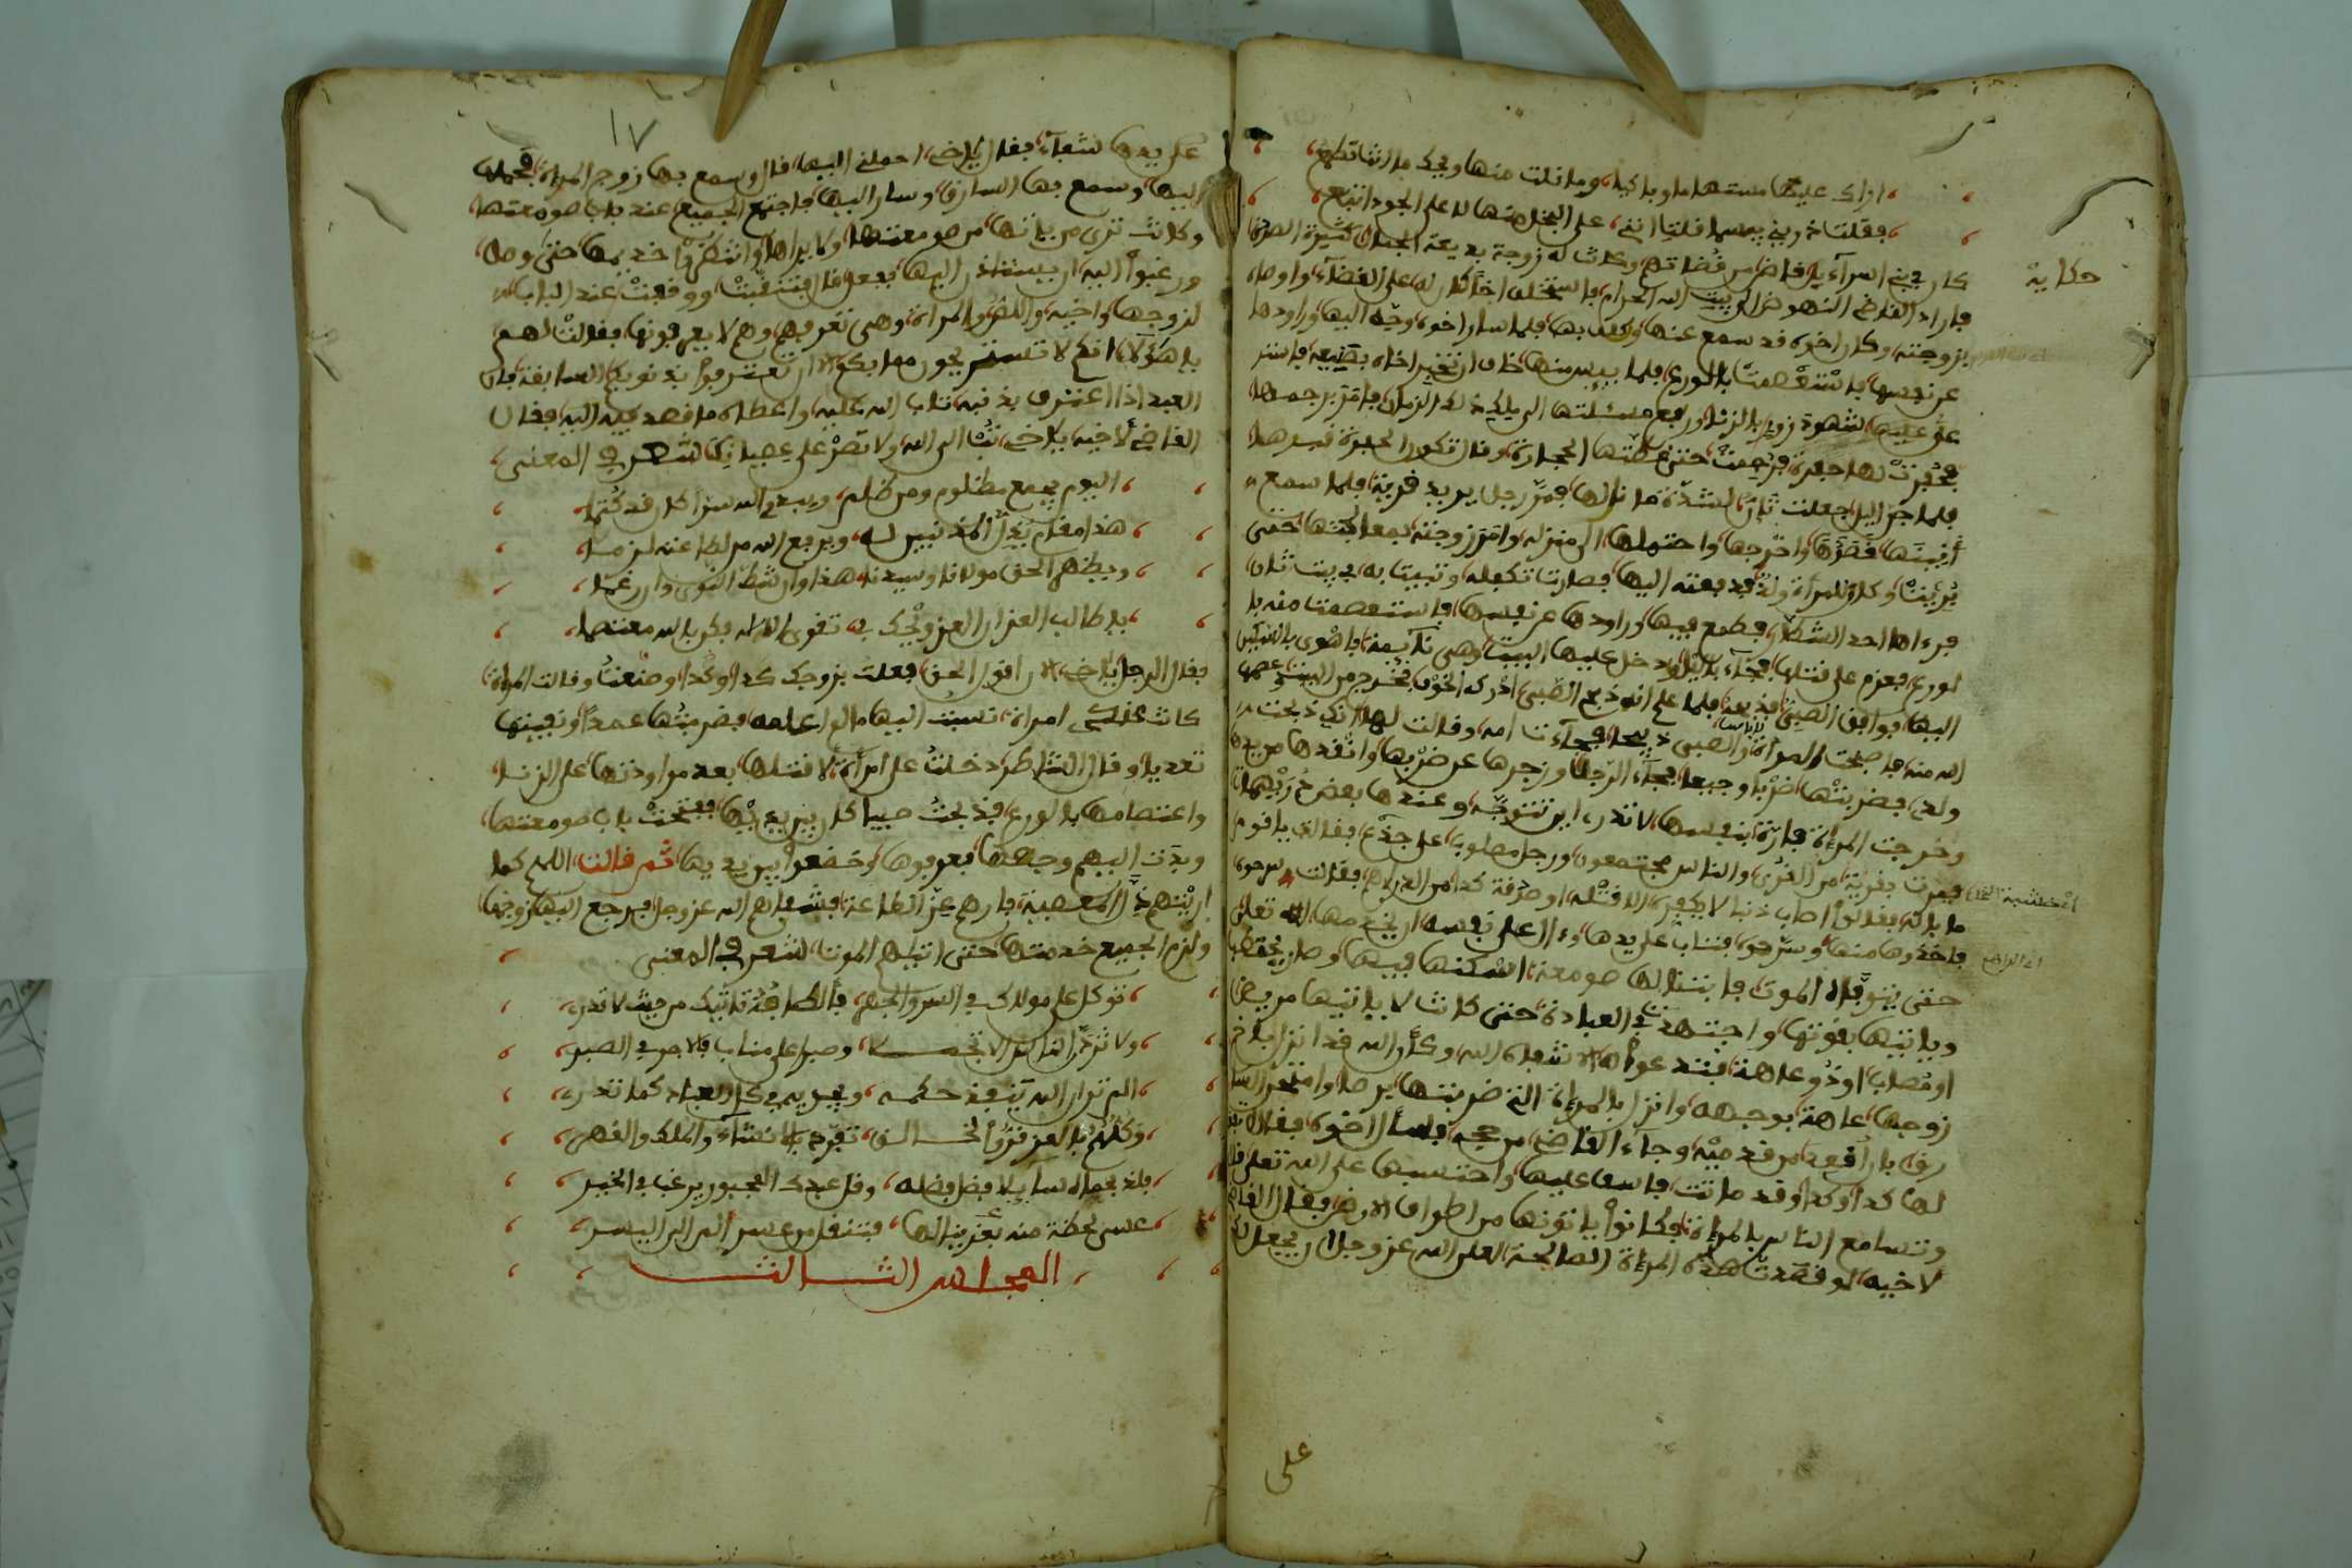 اراك عليها مستهاما وباكيا، وما نلت منها ويحك ما انت تطمع
فقلت ذريني بيسما قلت انني، على البخل منها لا على الجود اتبع
حكاية
كان في بني اسرآءيل قاض من قضاتهم وكانت له زوجة بديعة الجمال كثيرة الصون
فاراد القاضي النهوض الى بيت الله الحرام فاستخلف اخا كان له على القضآء واوصاه
بزوجته وكان اخوه قد سمع عنها وكلف بها فلما سار اخوه وجه اليها وراودها
عن نفسها فاستعصمت بالورع فلما يىس منها خاف ان تخبر اخاه بصنيعه فاستر
عى عليها لشهود زور بالزنا ورفع مسئلتها الى ملك ذلك الزمان فامر برجمها
فحفرت لها حفرة فرجمت حتى غطتها الحجارة وقال تكون الحفرة قبرها
فلما جن اليل جعلت تان لشدة ما نالها فمر رجل يريد قرية فلما سمع
أنينها قصدها واخرجها واحتملها الى منزله وامر زوجته بمعالجتها حتى
بريت وكان للمرأة ولد فدفعته اليها فصارت تكفله وتبيت به في بيت ثان
فرءاها احد الشطار فطمع فيها وراودها عن نفسها فاستعصمت منه با
لورع فعزم على قتلها فجآء باليل ودخل عليها البيت وهي نآيمة فاهوى بالسكين
اليها فوافق الصبي فذبحه فلما علم انه ذبح الصبي ادركه الخوف فخرج من البيت وعصمها
الله منه فاصبحت المرأة والصبي ذبيحا فجآءت امه وقالت لها انك ذبحت
ولدي فضربتها ضربا وجيعا فجآء الرجل وزجرها عن ضربها وانقذها من يدها
وخرجت المرأة فارة بنفسها لا تدري اين تتوجه وعندها بعض دريهمات
فمرت بقرية من القرى والناس مجتمعون ورجل مصلوب على جذع فقالت يا قوم
ما باله فقالوا اصاب ذنبا لا يكفره الا قتله او صدقة كذا من الدراهم فقالت سرحوه
فاخذوها منها وسرحوه فتاب على يدها وءالى على نفسه ان يخدمها لله تعالى
حتى يتوفاه الموت فابتنى لها صومعة اسكنها فيها وصار يحتطب
وياتيها بقوتها واجتهدت في العبادة حتى كانت لا ياتيها مريض
او مصاب او ذو عاهة فتدعو له الا شفاه الله وكان الله قد انزل باخ
زوجها عاهة بوجهه وانزل بالمرأة التي ضربتها برصا وامتحن السا
رق بان أقعد من قدميه وجآء القاضي من حجه فسال اخوه فقال
لها كذا وكذا وقد ماتت فاسف عليها واحتسبها على الله تعالى
وتسامع الناس بالمرأة فكانوا ياتونها من اطراف الارض فقال القاض
لاخيه لو قصدت هذه المرأة الصالحة لعل الله عز وجل ان يجعل لك
على
١٧
على يديها شفآء فقال يا اخي احملني اليها قال وسمع بها زوج المرأة فحملها
اليها وسمع بها السارق وسار اليها فاجتمع الجميع عند باب صومعتها
وكانت ترى من ياتها من صومعتها ولا يراها وانتظروا خديمها حتى وصل
ورغبوا اليه ان يستاذن اليها ففعل فتنقبت ووقفت عند الباب
لزوجها واخيه واللص والمرأة وهي تعرفهم وهم لا يعرفونها فقالت لهم
يا هؤلاء انكم لا تستريحون مما بكم الا ان تعترفوا بذنوبكم السابقة فان
العبد اذا اعترف بذنبه تاب الله عليه واعطاه ما قصد فيه اليه فقال
القاضي لاخيه يا اخي تب الى الله ولا تصر على عصيانك شعر في المعنى
اليوم يجمع مظلوم ومن ظلم، ويبدي الله سرا كان قد كتما
هذا مقام يذل المذنبين له، ويرفع الله من لطاعته لزما
ويظهر الحق مولانا وسيدنا، هذا وان شط النوى وان رغما
يا طالب العز ان العز ويحك في، تقوى الاله فكن بالله معتصما
فقال الرجل يا اخي الان اقول الحق فعلت بزوجك كذا وكذا وصنعت وقالت المرأة
كانت عندي امرأة نسبت اليها ما لم اعلمه فضربتها عمدا ونفيتها
تعديا وقال الشاطر دخلت على امرأة لاقتلها بعد مراودتها على الزنا
واعتصامها بالورع فذبحت صبيا كان بين يديها ففتحت باب صومعتها
وبدت اليهم وجهها فعرفوها وخضعوا بين يديها ثم قالت اللهم كما
اريتهم ذل المعصية فارهم عز الطاعة فشفاهم الله عز وجل فرجع اليها زوجها
ولزم الجميع خدمتها حتى اتاهم الموت شعر في المعنى
توكل على مولاك في السر والجهر، فألطافه تاتيك من حيث لا تدري
ولا ترج الناس الا تجمـــلا، وصبرا على مناب فالاجر في الصبر
الم تر ان الله ينفذ حكمه، ويجريه في كل العباد كما تدري
وكلهم بالعز قروا لخـــالق، تفرد بالانشآء والملك والقهر
فلذ بحماه سآيلا فيض فضله، وقل عبدك المجبور يرغب في الخير
عسى لحظة منه بعز ينالها، فتنقل من عسر الى اليسر
المجلس الثـــالث